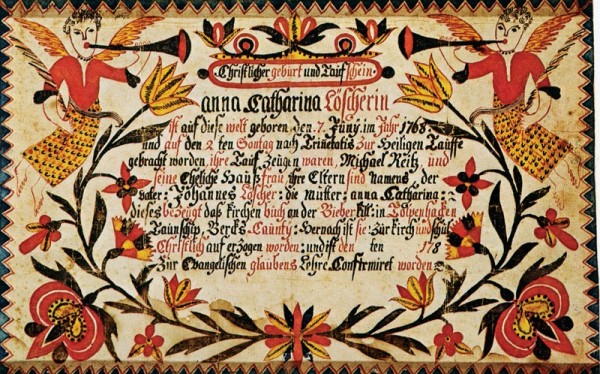 Christlicher geburt und Tauf schein
anna Catharina Löscherin
ist auf diese welt geboren den 7. Juny im Jahr 1768
und auf den 2 ten Sontag nach Trinetatis Zur Heiligen Tauffe
gebracht worden, ihre Tauf Zeugen waren, Michael Reitz und
seine Eheliche Hauß frau, ihre Eltern sind Namens der
vater: Johannes Löscher: die Mutter: anna Catharina:
dieses bezeugt daß kirchen buch an der Bieber in
Taunschip Bercks Caunty: Hernach ist sie Zur kirch und schul
Christlich auf erzogen worden: und ist den ten 178
Zur Evangelischen glaubens Lehre Confirmiret worden